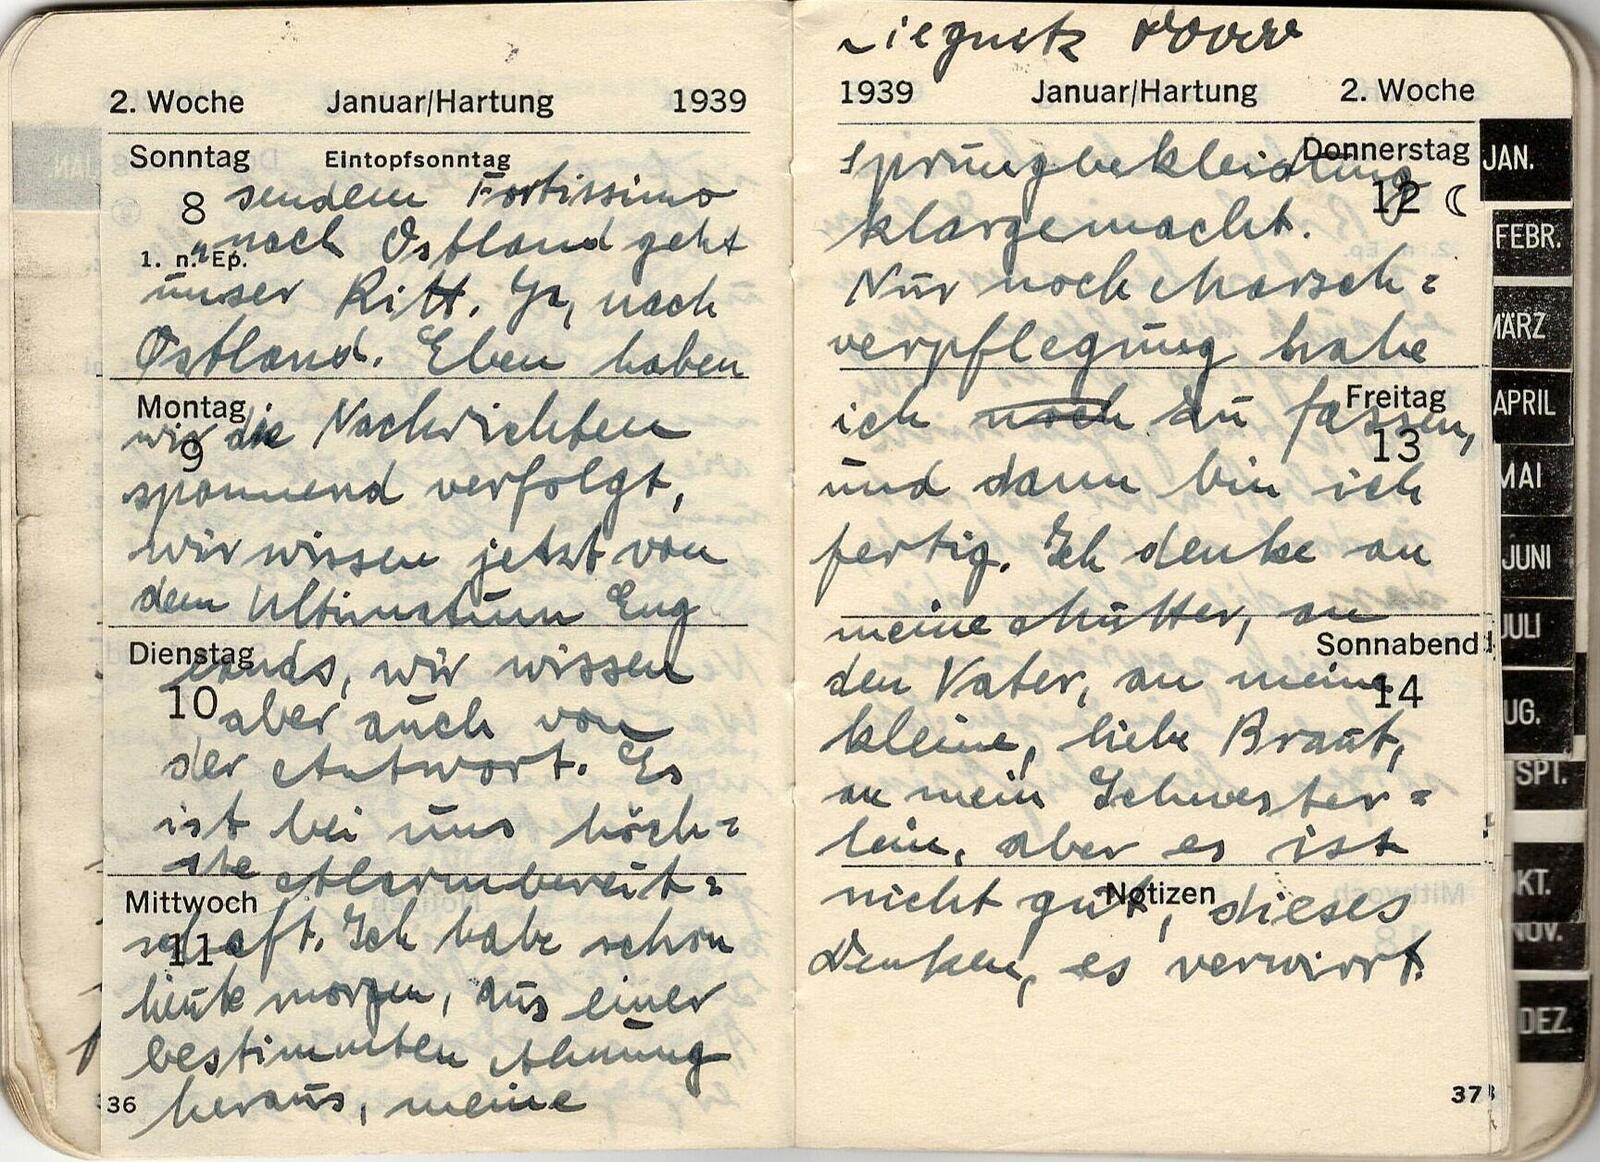 2. Woche Januar/Hartung 1939
Sonntag Eintopfsonntag
8 sendem Fortissimo
1. n. Ep. "nach Ostland geht
unser Ritt. Ja, nach
Ostland. Eben haben
Montag
9
wir die Nachrichten
spannend verfolgt,
wir wissen jetzt von
dem Ultimatum Eng
Dienstag
10
lands, wir wissen
aber auch von
der Antwort. Es
ist bei uns höch=
ste Alarmbereit=
Mittwoch
11
schaft. Ich habe schon
heute morgen, aus einer
bestimmten Ahnung
heraus, meine
36
Liegnitz
1939 Januar/Hartung 2. Woche
Donnerstag
12
sprungbekleidung
klargemacht.
Nur noch Marsch=
verpflegung habe
Freitag
13
ich noch zu fassen,
und dann bin ich
fertig. Ich denke an
meine Mutter, an
Sonnabend
14
den Vater, an meine
kleine, liebe Braut,
an mein Schwester=
lein, aber es ist
Notizen
nicht gut, dieses
Denken, es verwirrt.
37
JAN.
FEBR.
MÄRZ
APRIL
MAI
JUNI
JULI
UG.
SPT.
KT.
NOV.
DEZ.